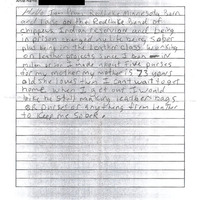 Hello I'm from Redlake Minnesota Born
and lived on the Redlake Band of
chippewa Indian reservation and being
in prison changed my life being sober
plus being in the leather class working
on leather projects since I been in
prison I made about five purses
for my mother my mother is 73 years
old she loves them I can't wait to get
home when I get out I would
like to start making leather bags
or purses or anything from leather
to keep me sober.